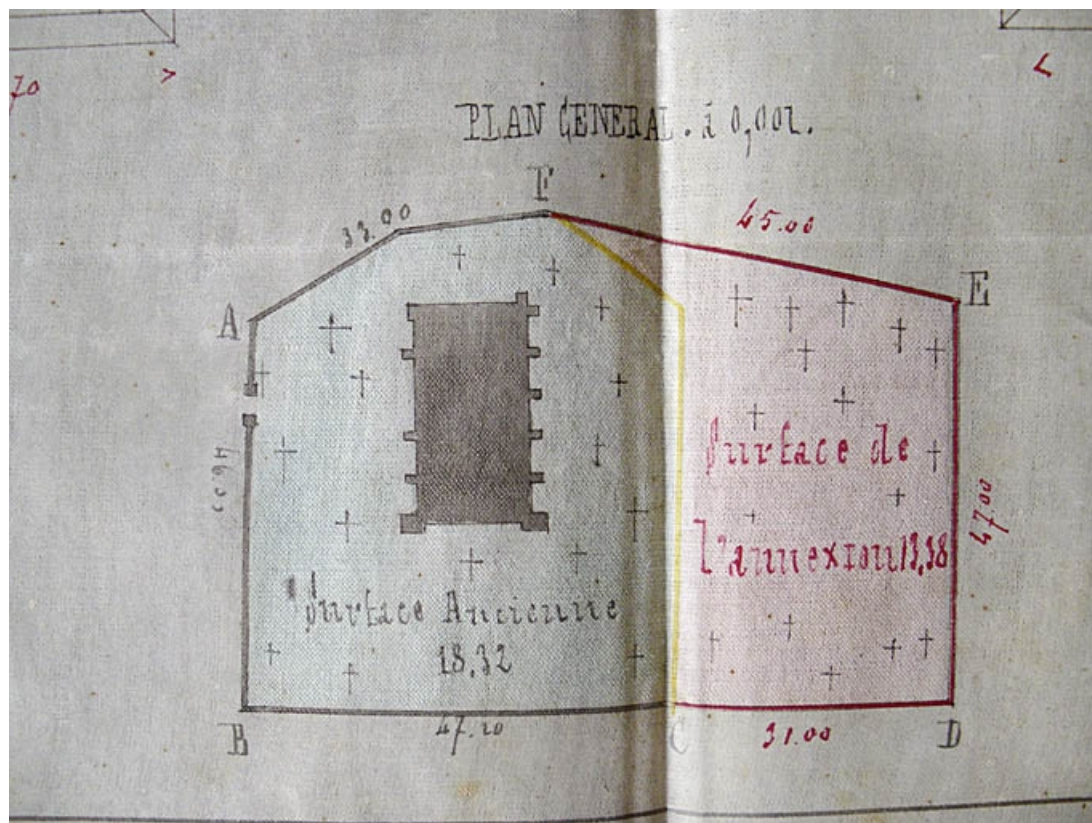 70
PLAN GENERAL. à 0,002.
F
33.00
45.00
A
E
46.00
Surface de
l'annexion 13,38
47.00
Surface Ancienne
18.32
B
47.20
C
31.00
D